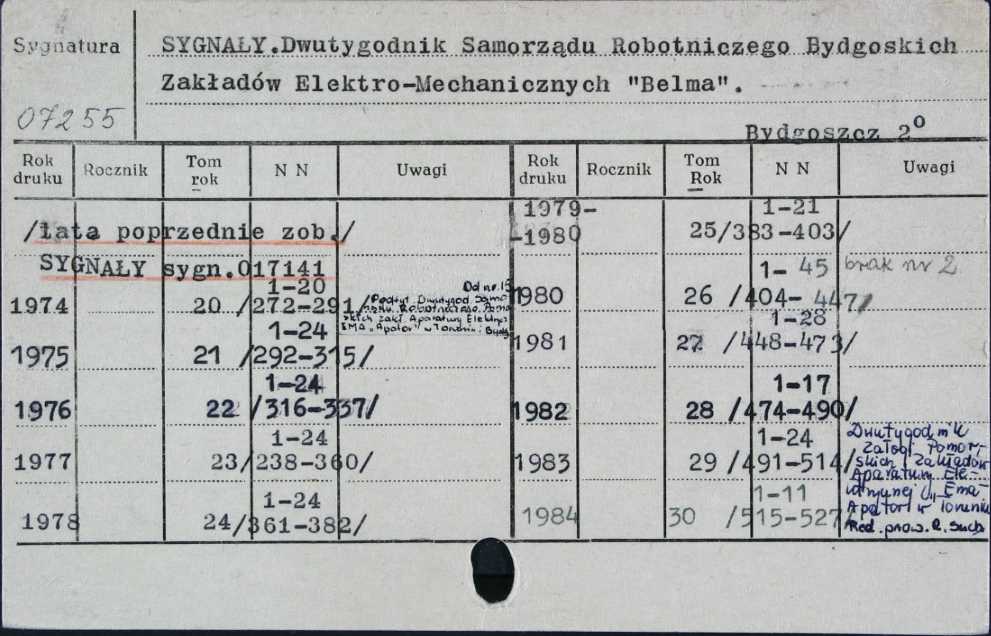 Sygnatura
SYGNAŁY.Dwutygodnik Samorządu Robotniczego Bydgoskich
Zakładów Elektro-Mechanicznych "Belma".
07255
Bydgoszcz 2°
Rok druku Rocznik Tom rok N N Uwagi Rok druku Rocznik Tom Rok N N Uwagi
/lata poprzednie zob./
SYGNAŁY sygn.017141
1974 20 1-20 /272-291/
Od nr 15
Podtyt. Dwutygod. Samo
rządu Robotniczego Pomo
rskich Zakł. Aparatury Elektrycz
EMA "Apator" w Toruniu i Bydg
1975 21 1-24 /292-315/
1976 22 1-24 /316-337/
1977 23 1-24 /238-360/
1978 24 1-24 /361-382/
1979-
-1980 25 1-21 /383-403/
1980 26 1-45 /404-447/ brak nr 2
1981 27 1-28 /448-473/
1982 28 1-17 /474-490/
1983 29 1-24 /491-514/
1984 30 1-11 /515-527/
Dwutygodnik
załogi Pomor-
skich Zakładów
Aparatury Ele-
"Ema
Apator" w Toruniu
Red. R. Such